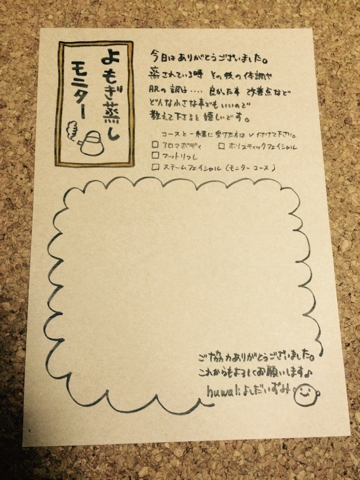 よもぎ蒸し
モニター
今日はありがとうございました。
蒸されている時 その後の体調や
肌の調子は.... 良かった事 改善点など
どんな小さな事でもいいので
教えて下さると嬉しいです。
コースと一緒に受けた方は✓付けて下さい。
□ アロマボディ □ ホリスティックフェイシャル
□ フットリフレ
□ スチームフェイシャル (モニターコース)
ご協力ありがとうございました。
これからもよろしくお願いします♪
huwali よしだいずみ